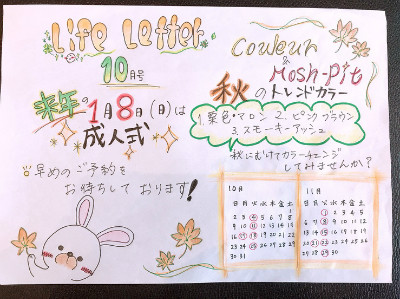 Life Letter
10月号
Couleur
&
Mosh-Pit
秋のトレンドカラー
来年の1月8日(日)は
成人式
1.栗色・マロン 2.ピンクブラウン
3.スモーキーアッシュ
秋にむけてカラーチェンジ
してみませんか?
早めのご予約を
お待ちしております!
10月
日月火水木金土
1
2 3 4 5 6 7 8
9 10 11 12 13 14 15
16 17 18 19 20 21 22
23 24 25 26 27 28 29
30 31
11月
日月火水木金土
1 2 3 4 5
6 7 8 9 10 11 12
13 14 15 16 17 18 19
20 21 22 23 24 25 26
27 28 29 30